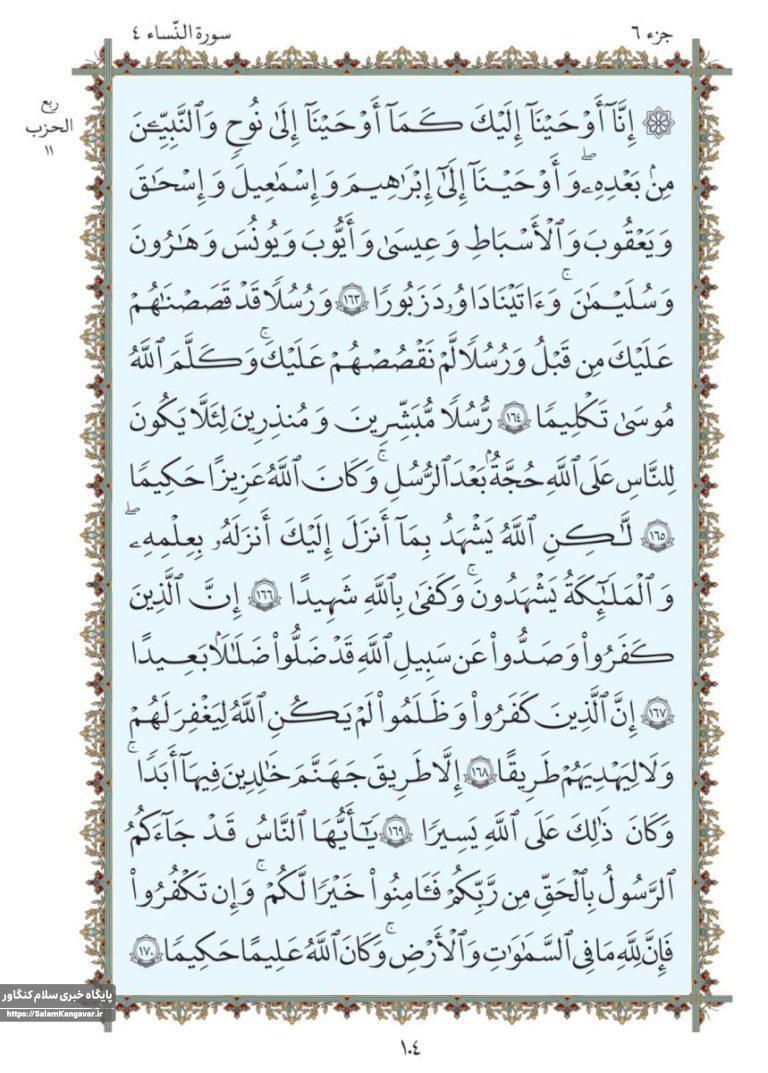 جزء ٦
سورة النّساء ٤
ربع
الحزب
١١
۞ إِنَّآ أَوْحَيْنَآ إِلَيْكَ كَمَآ أَوْحَيْنَآ إِلَىٰ نُوحٍ وَٱلنَّبِيِّـۧنَ
مِنۢ بَعْدِهِۦۚ وَأَوْحَيْنَآ إِلَىٰٓ إِبْرَٰهِيمَ وَإِسْمَٰعِيلَ وَإِسْحَٰقَ
وَيَعْقُوبَ وَٱلْأَسْبَاطِ وَعِيسَىٰ وَأَيُّوبَ وَيُونُسَ وَهَٰرُونَ
وَسُلَيْمَٰنَۚ وَءَاتَيْنَا دَاوُۥدَ زَبُورًا ١٦٣ وَرُسُلًا قَدْ قَصَصْنَٰهُمْ
عَلَيْكَ مِن قَبْلُ وَرُسُلًا لَّمْ نَقْصُصْهُمْ عَلَيْكَۚ وَكَلَّمَ ٱللَّهُ
مُوسَىٰ تَكْلِيمًا ١٦٤ رُّسُلًا مُّبَشِّرِينَ وَمُنذِرِينَ لِئَلَّا يَكُونَ
لِلنَّاسِ عَلَى ٱللَّهِ حُجَّةٌۢ بَعْدَ ٱلرُّسُلِۚ وَكَانَ ٱللَّهُ عَزِيزًا حَكِيمًا
١٦٥ لَّٰكِنِ ٱللَّهُ يَشْهَدُ بِمَآ أَنزَلَ إِلَيْكَ أَنزَلَهُۥ بِعِلْمِهِۦۖ
وَٱلْمَلَٰٓئِكَةُ يَشْهَدُونَۚ وَكَفَىٰ بِٱللَّهِ شَهِيدًا ١٦٦ إِنَّ ٱلَّذِينَ
كَفَرُوا۟ وَصَدُّوا۟ عَن سَبِيلِ ٱللَّهِ قَدْ ضَلُّوا۟ ضَلَٰلًۢا بَعِيدًا
١٦٧ إِنَّ ٱلَّذِينَ كَفَرُوا۟ وَظَلَمُوا۟ لَمْ يَكُنِ ٱللَّهُ لِيَغْفِرَ لَهُمْ
وَلَا لِيَهْدِيَهُمْ طَرِيقًا ١٦٨ إِلَّا طَرِيقَ جَهَنَّمَ خَٰلِدِينَ فِيهَآ أَبَدًاۚ
وَكَانَ ذَٰلِكَ عَلَى ٱللَّهِ يَسِيرًا ١٦٩ يَٰٓأَيُّهَا ٱلنَّاسُ قَدْ جَآءَكُمُ
ٱلرَّسُولُ بِٱلْحَقِّ مِن رَّبِّكُمْ فَـَٔامِنُوا۟ خَيْرًا لَّكُمْۚ وَإِن تَكْفُرُوا۟
فَإِنَّ لِلَّهِ مَا فِي ٱلسَّمَٰوَٰتِ وَٱلْأَرْضِۚ وَكَانَ ٱللَّهُ عَلِيمًا حَكِيمًا ١٧٠
پایگاه خبری سلام کنگاور
https://SalamKangavar.ir
١٠٤